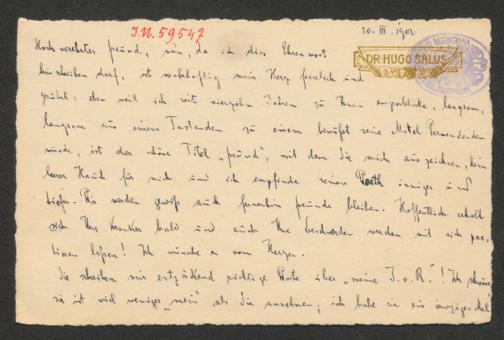 I.N. 59547
20. III. 1902
DR HUGO SALUS
Hoch verehrter Freund, nun, da ich dies Ehrenwort
hinschreiben darf, ist wahrhaftig mein Herz feierlich und
gerührt: eben weil ich seit Jahren zu Ihnen emporblicke, langsam,
langsam aus einem Tastenden zu einem bewußt seine Mittel Verwendenden
wurde, ist der schöne Titel „Freund", mit dem Sie mich auszeichnen, kein
leerer Hauch für mich und ich empfinde seinen Werth inniger und
tiefer. Wir werden gewiß auch fernerhin Freunde bleiben. Hoffentlich erholt
sich Ihr Kranker bald und auch Ihre Beschwerden werden mit sich
lassen! Ich wünsche es von Herzen.
Sie schreiben mir entzückend richtige Worte über „meine S. v. R."! Ich schwöre
sie ist viel weniger „mein" als Sie annehmen; ich habe sie ein einziges Mal